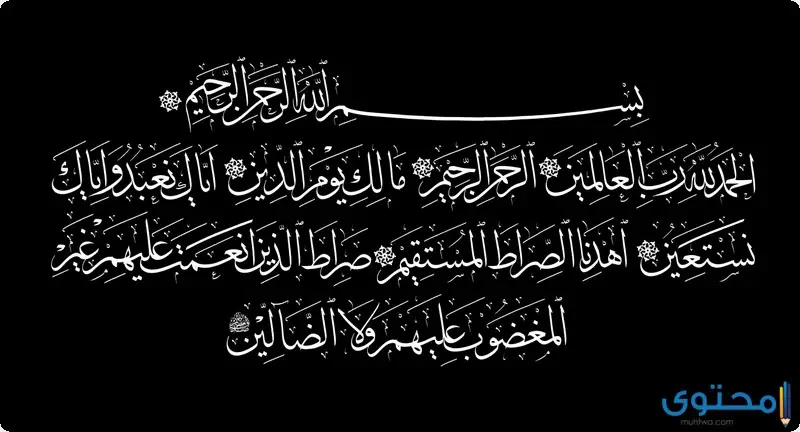 بِسْمِ اللَّهِ الرَّحْمَٰنِ الرَّحِيمِ
الْحَمْدُ لِلَّهِ رَبِّ الْعَالَمِينَ الرَّحْمَٰنِ الرَّحِيمِ مَالِكِ يَوْمِ الدِّينِ إِيَّاكَ نَعْبُدُ وَإِيَّاكَ
نَسْتَعِينُ اهْدِنَا الصِّرَاطَ الْمُسْتَقِيمَ صِرَاطَ الَّذِينَ أَنْعَمْتَ عَلَيْهِمْ غَيْرِ
الْمَغْضُوبِ عَلَيْهِمْ وَلَا الضَّالِّينَ
محتوى
muhtwa.com